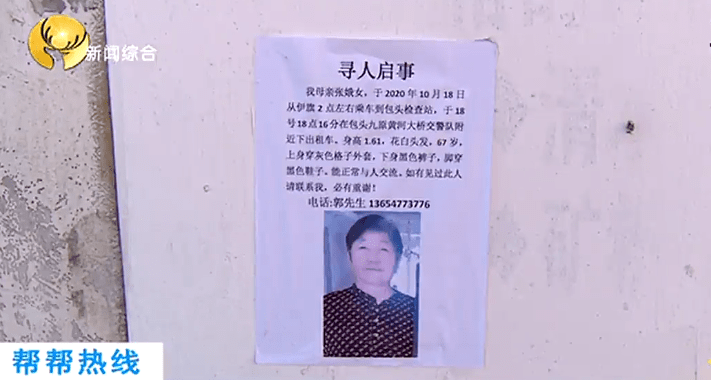 新闻综合
寻人启事
我母亲张娥女，于 2020 年 10 月 18 日
从伊旗 2 点左右乘车到包头检查站，于 18
号 18 点 16 分在包头九原黄河大桥交警队附
近下出租车。身高 1.61，花白头发，67 岁，
上身穿灰色格子外套，下身黑色裤子，脚穿
黑色鞋子。能正常与人交流。如有见过此人
请联系我，必有重谢！
电话:郭先生 13654773776
帮帮热线